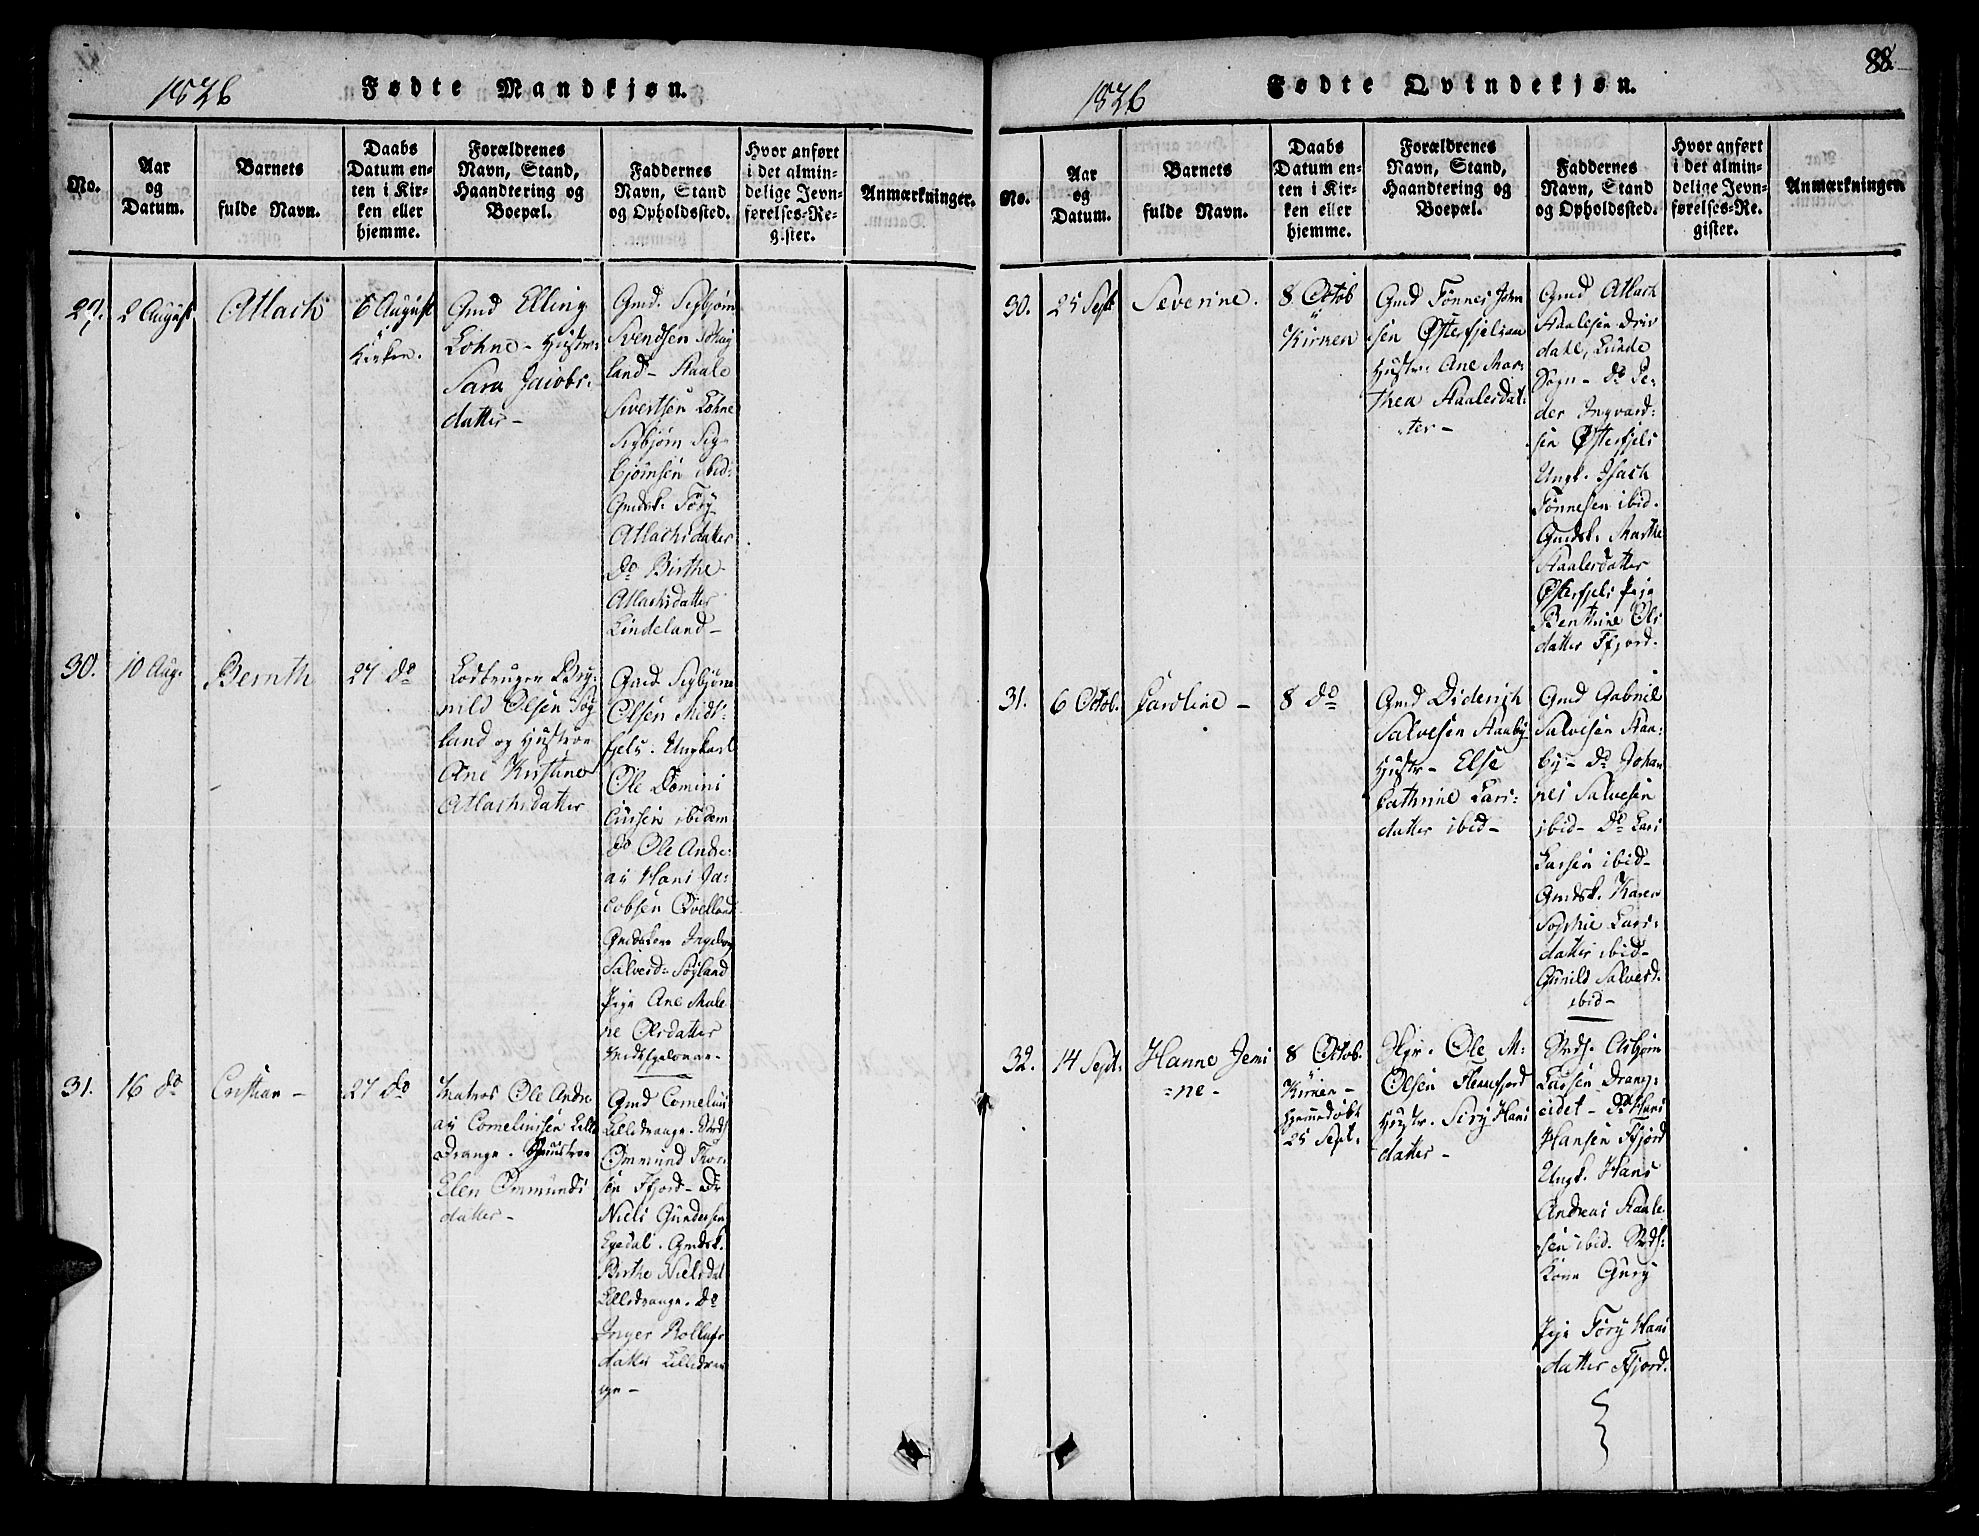 1826
Fødte Mandkjøn.
No.
Aar
og
Datum.
Barnets
fulde Navn.
Daabs
Datum en-
ten i Kir-
ken eller
hjemme.
Forældrenes
Navn, Stand,
Haandtering og
Boepæl.
Faddernes
Navn, Stand
og Opholdssted.
Hvor anført
i det almin-
delige Jevn-
førelses-Re-
gister.
Anmærkninger.
29.
2 August
Atlach
6 August
i
Kirken.
Gmd Elling
Lohne - Hustr:
Sara Jacobs-
datter -
Gmd. Sigbjørn
Svendsen
land - Staale
Sivertsen Lohne
Sigbjørn Sig-
bjørnsen ibid:
Gmdsk. Tory
Atlachsdatter
do Birthe
Atlachsdatter
Lindeland -
30.
10 Aug.
Bernth
27 do
Ols en Søg
land og Hustroe
Ane Kirstine
Atlachsdatter
Gmd Sigbjørn
Olsen Midt-
fjels. Ungkarl
Ole Domini
cusen ibidem
do Ole Andre-
as Hans Ja-
cobsen Qvelland
Ingeborg
Salvesd: Søgland
Pige Ane Male-
ne Olsdatter
31.
16 do
Cristian -
27 do
Matros Ole Andre
as Corneliussen Lille
Drange. Hustroe
Elen Ommunds
datter -
Gmd Cornelius
Lilledrange.
Ommund Thor-
sen Ffjord - do
Niels Gundersen
Egedal. Gmdsk.
Birthe Nielsdat
Lilledrange. do
Inger Rollufs
datter Lilledran
ge -
88.
1826
Fødte Qvindekjøn.
No.
Aar
og
Datum.
Barnets
fulde Navn.
Daabs
Datum en-
ten i Kir-
ken eller
hjemme.
Forældrenes
Navn, Stand,
Haandtering og
Boepæl.
Faddernes
Navn, Stand
og Opholdssted.
Hvor anført
i det almin-
delige Jevn-
førelses-Re-
gister.
Anmærkninger
30.
25 Sept
Severine.
8 Octob
i
Kirken
Gmd Tønnes John
sen Østefjels
Hustr: Ane Mar-
thea Staalesdat-
ter -
Gmd Atlach
Staalesen Driv
dahl, Lunde
Sogn - do Pe-
der Ingvard-
sen Østefjels
Ungk. Isach
Tønnesen ibid.
Gmdsk. Marthe
Staalesdatter
Østefjels Pige
Benthine Ols
datter Ffjord.
31.
6 Octob.
Caroline -
8 do
Gmd Diderich
Salvesen Staaby
Hustr - Else
Cathrine Lars-
datter ibid -
Gmd Gabriel
Salvesen Staa-
by - do Johan
nes Salvesen
ibid - do Lars
Larsen ibid -
Gmdsk. Karen
Sophie Lars-
datter ibid -
Gunild Salvesd.
ibid -
32.
14 Sept:
Hanne Jemi
=ne -
8 Octob.
i
Kirken -
Hjemmedøbt
25 Sept:
Ole M:
Olsen Flekkefjord
Hustr. Siry Hans
datter -
Asbjørn
Larsen Drang-
eidet - do Hans
Hansen Ffjord
Ungk. Hans
Andreas Staale
sen ibid.
kone Gury
Pige Tory Hans
datter Ffjord.